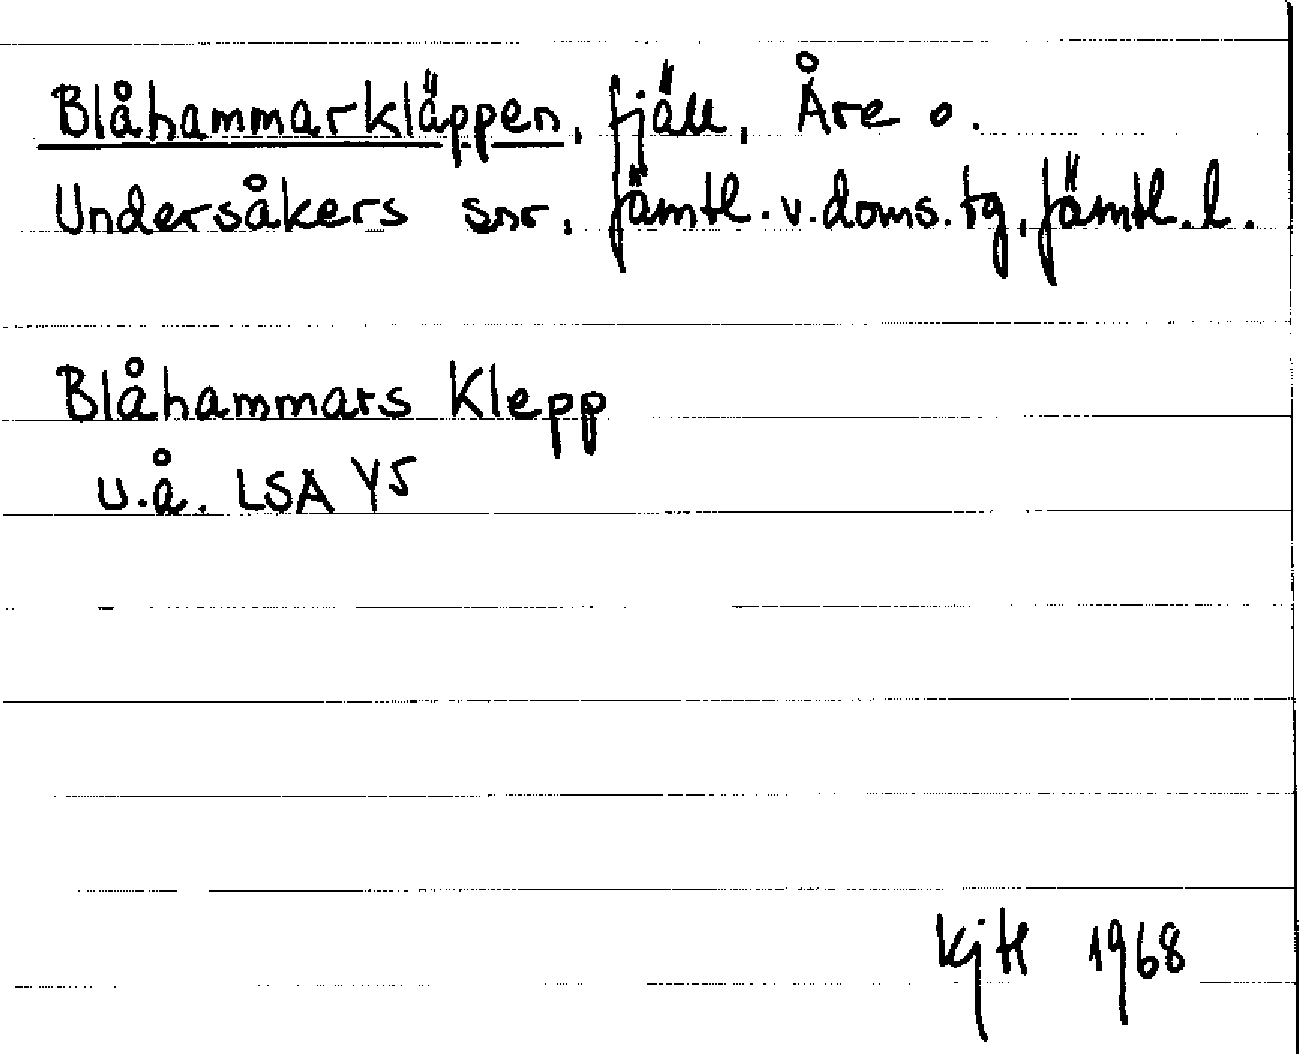 Blåhammarkläppen, fjäll, Åre o.
Undersåkers snr, Jämtl. v. doms. tg, Jämtl. l.
Blåhammars Klepp
u.å. LSA Y5
1968